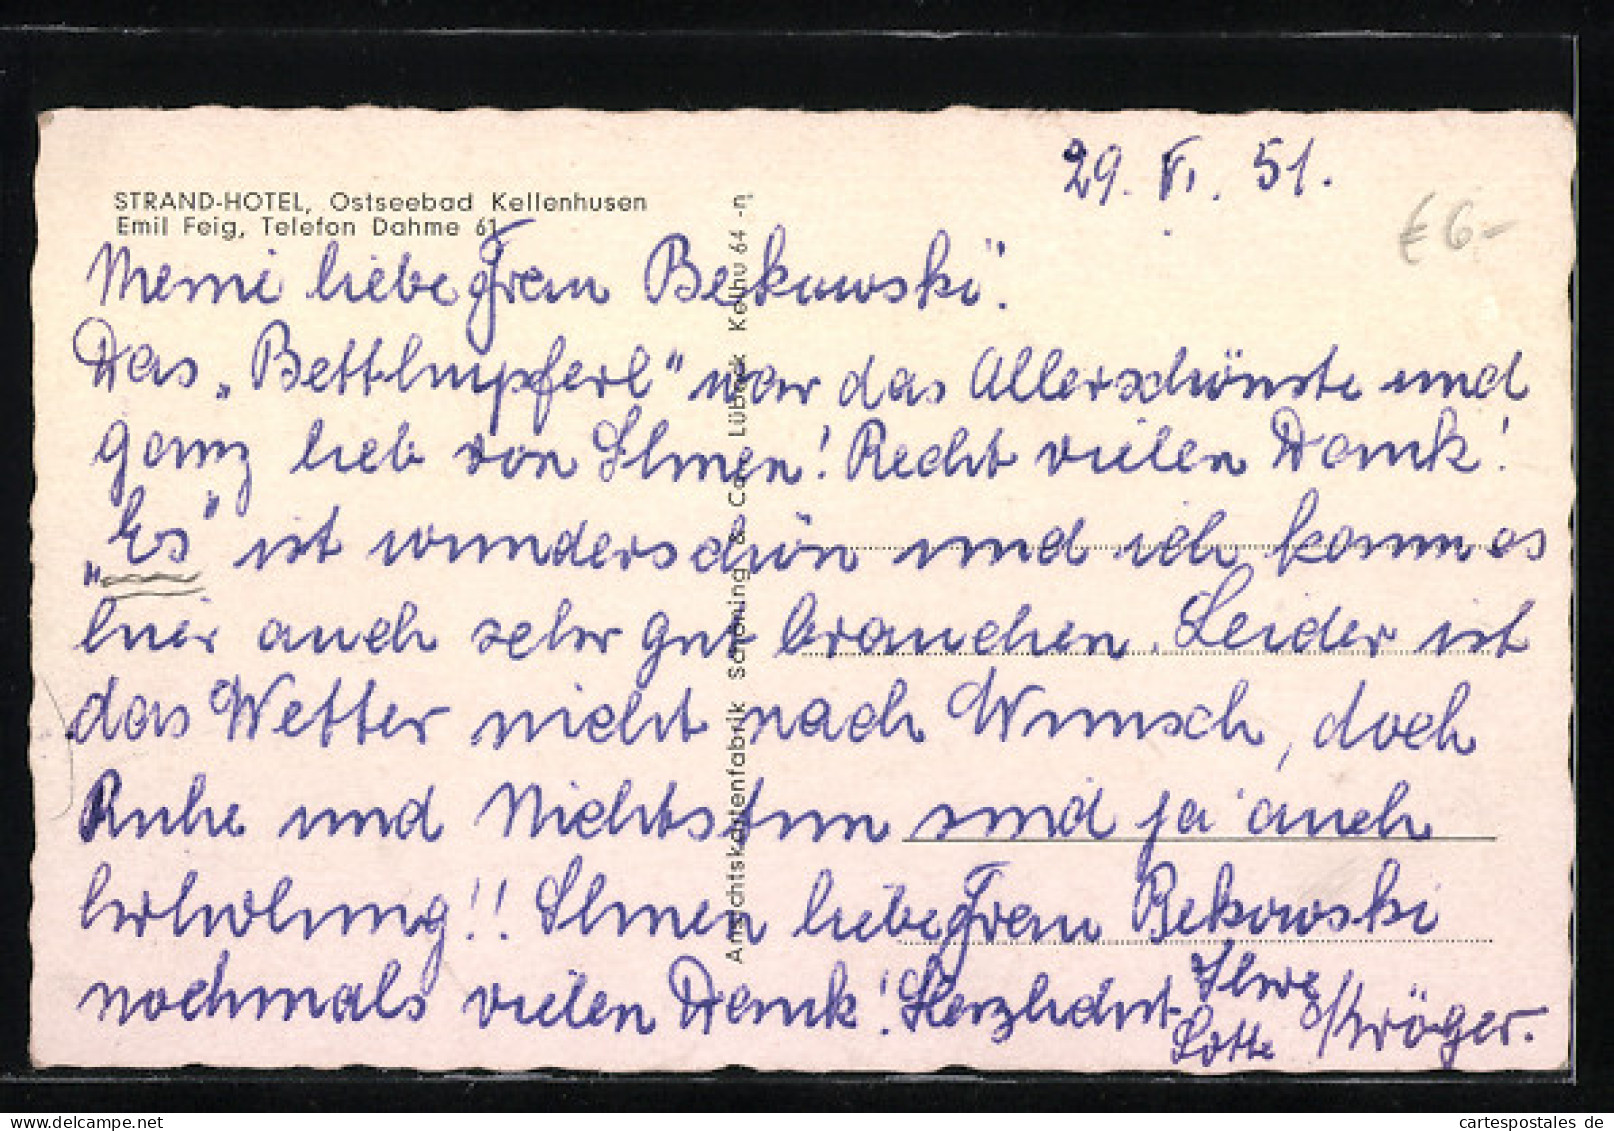 29. VI. 51.
€ 6.-
STRAND-HOTEL, Ostseebad Kellenhusen
Emil Feig, Telefon Dahme 61
Meine liebe Frau Bekowski!
Das „Betthupferl" war das Allerschönste und
ganz lieb von Ihnen! Recht vielen Dank!
„Es" ist wunderschön und ich kann es
hier auch sehr gut brauchen. Leider ist
das Wetter nicht nach Wunsch, doch
Ruhe und Nichtstun sind ja auch
Erholung!! Ihnen liebe Frau Bekowski
nochmals vielen Dank! Herzlichst Ihre
Lotte Kröger.
Ansichtskartenfabrik Schöning & Co., Lübeck Kelhu 64 -n
cartespostales de